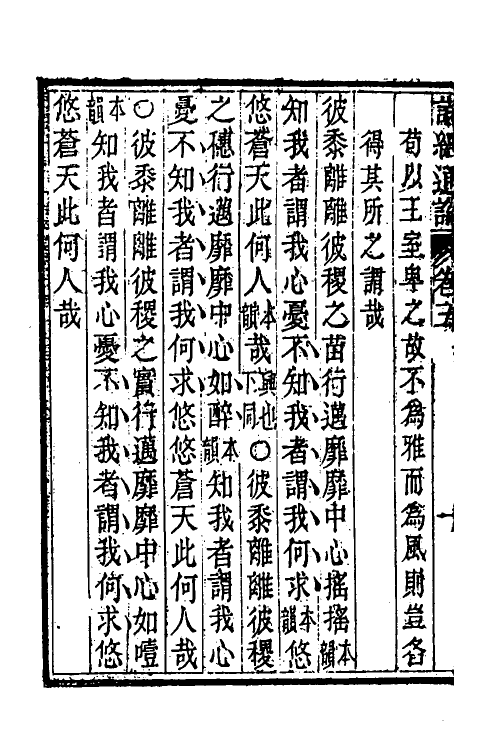 詩經通論 卷五
苟以王室卑之故不為雅而為風則豈各
得其所之謂哉
彼黍離離彼稷之苗行邁靡靡中心搖搖本韻
知我者謂我心憂不知我者謂我何求本韻悠
悠蒼天此何人本韻哉興也下同〇彼黍離離彼稷
之穗行邁靡靡中心如醉本韻知我者謂我心
憂不知我者謂我何求悠悠蒼天此何人哉
〇彼黍離離彼稷之實行邁靡靡中心如噎
本韻知我者謂我心憂不知我者謂我何求悠
悠蒼天此何人哉